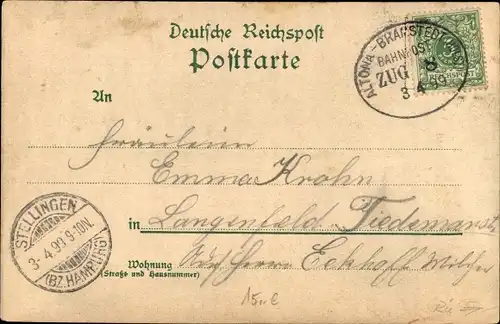 Deutsche Reichspost
Postkarte
ALTONA-BRAMSTEDT
BAHNPOST
ZUG 8
3 4 99
REICHSPOST
An
Fräulein
Emma Krohn
in Langenfeld Tiedemanstr
Wohnung
(Straße und Hausnummer)
Herrn Eckhoff
STELLINGEN
3-4.99 9-10N.
(BZ.HAMBURG)
15.-€